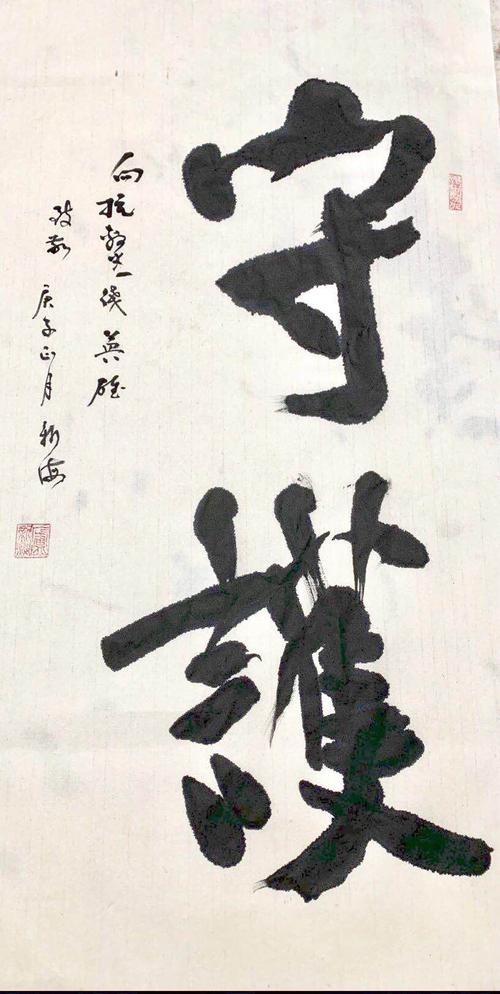 守護
向抗疫一线英雄
致敬 庚子正月 新海